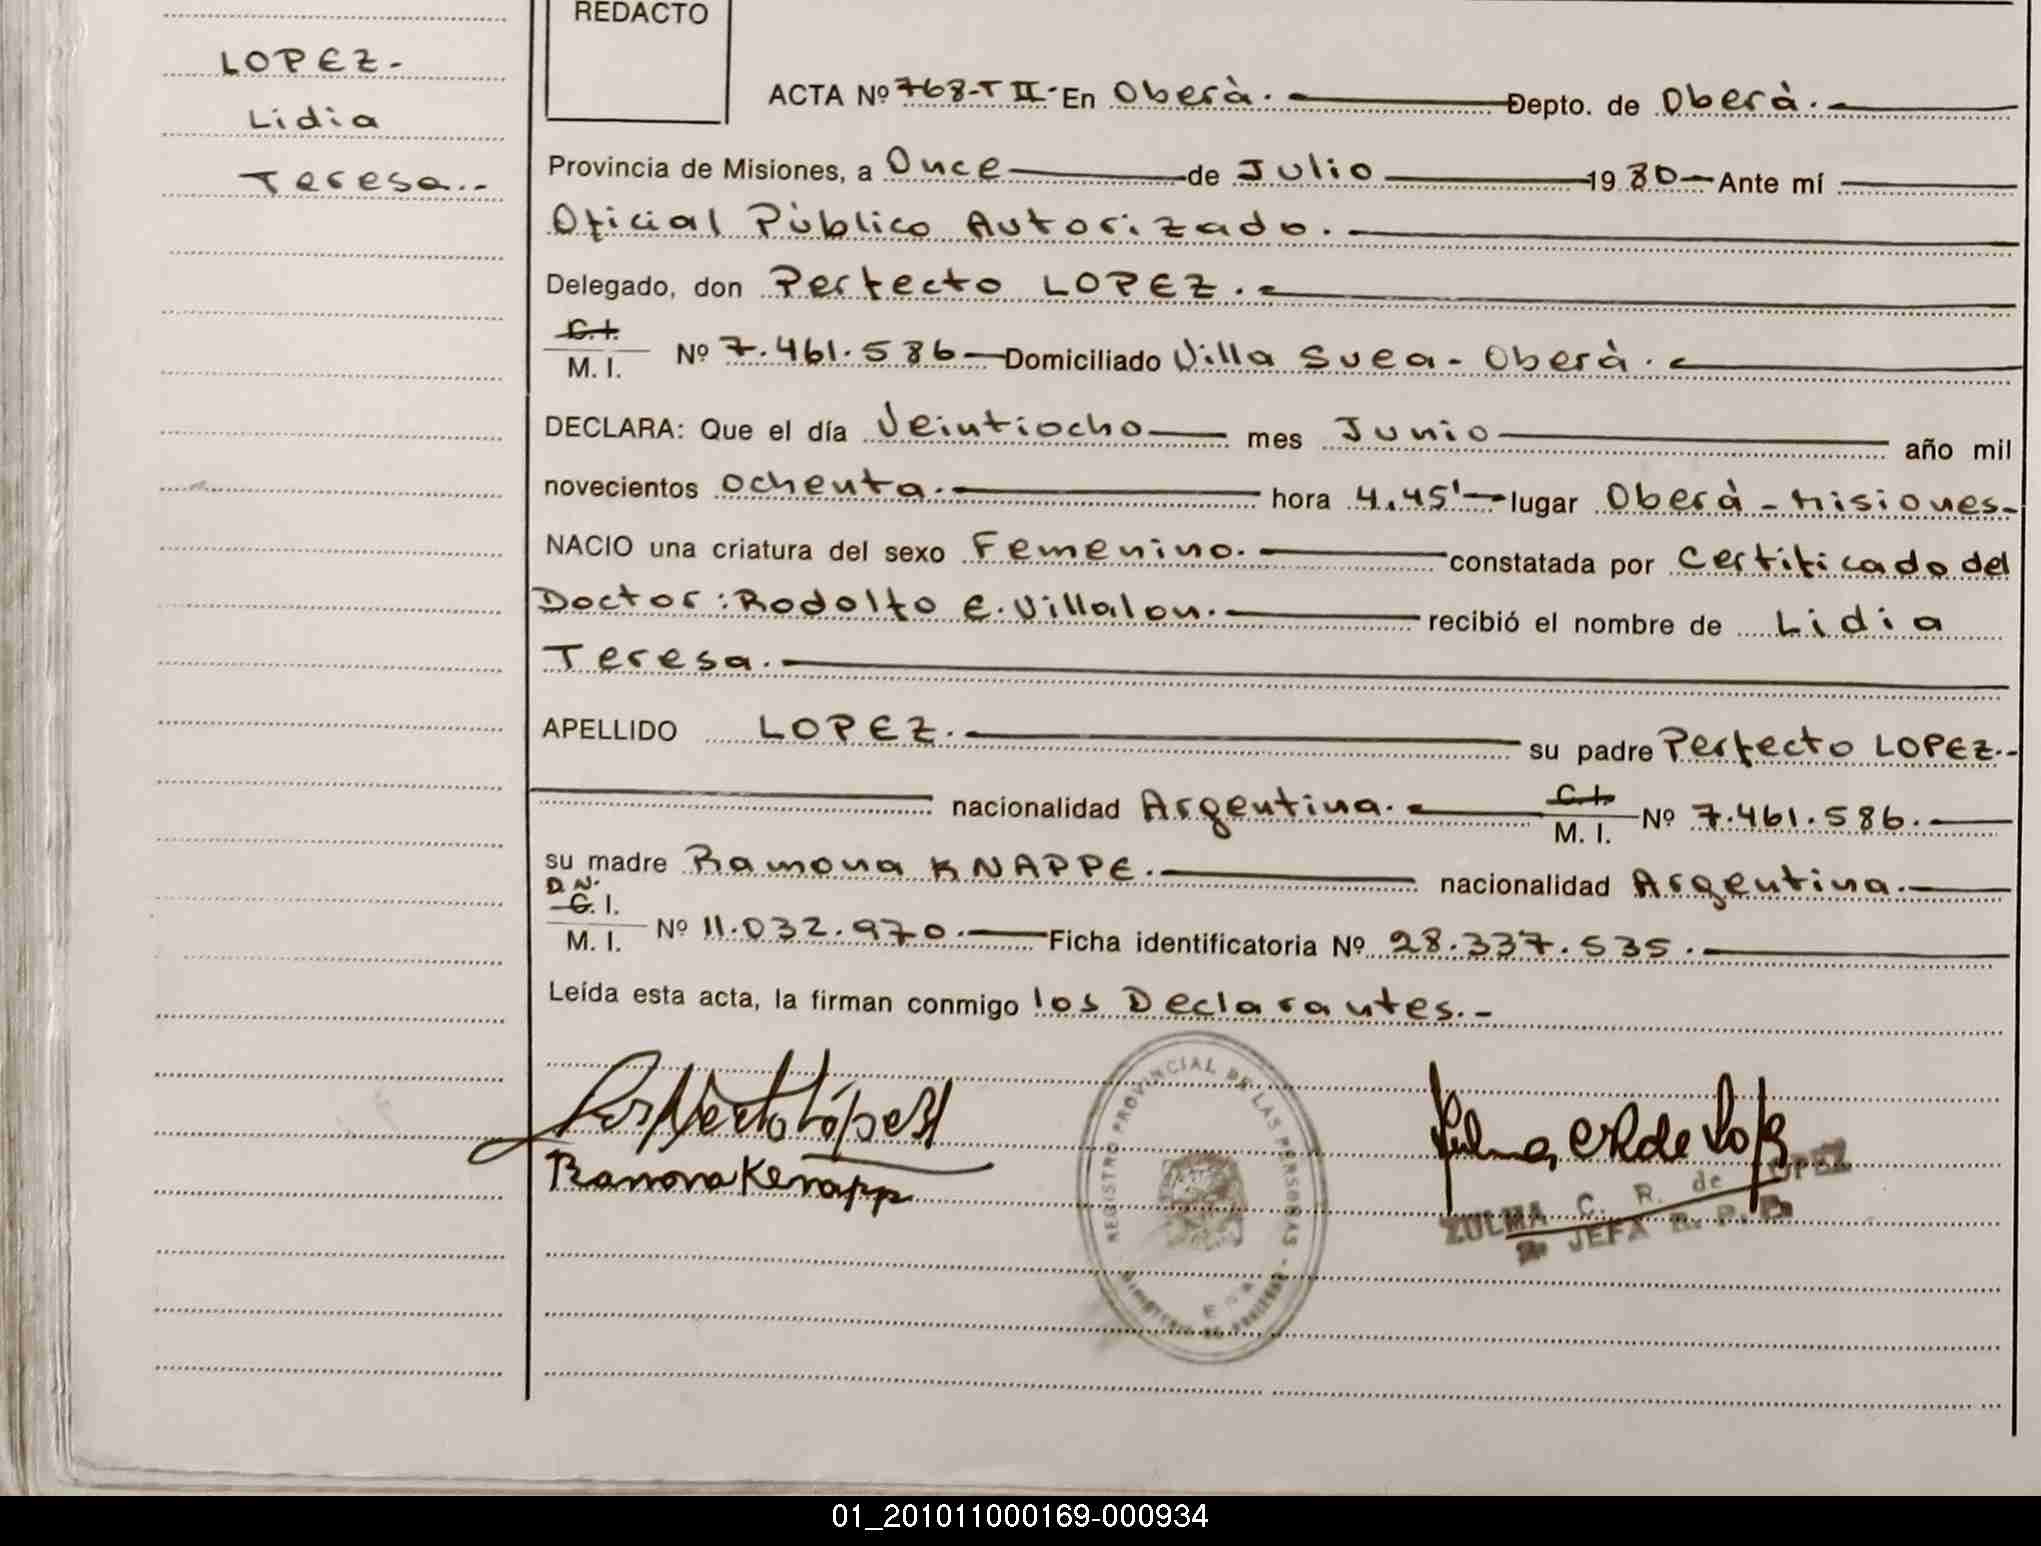 LOPEZ.-
Lidia
Teresa.-
REDACTO
ACTA Nº 768-T II- En Oberà. Depto. de Oberà.
Provincia de Misiones, a Once de Julio 19 80 Ante mí
Oficial Pùblico Autorizado.
Delegado, don Perfecto LOPEZ.
C.I.
M. I. Nº 7.461.586 Domiciliado Villa Svea - Oberà.
DECLARA: Que el día Veintiocho mes Junio año mil
novecientos ochenta. hora 4.45' lugar Oberà - Misiones-
NACIO una criatura del sexo Femenino. constatada por Certificado del
Doctor: Rodolfo E. Villalon. recibió el nombre de Lidia
Teresa.
APELLIDO LOPEZ. su padre Perfecto LOPEZ.-
nacionalidad Argentina. C.I.
M. I. Nº 7.461.586.
su madre Ramona KNAPPE. nacionalidad Argentina.
D.N.
C. I.
M. I. Nº 11.032.970. Ficha identificatoria Nº 28.337.535.
Leída esta acta, la firman conmigo los Declarantes.-
Perfecto López
Ramona Kenapp
REGISTRO PROVINCIAL DE LAS PERSONAS
MINISTERIO DE GOBIERNO
ZULMA C. R. de LOPEZ
JEFA R. P. P.
01_201011000169-000934